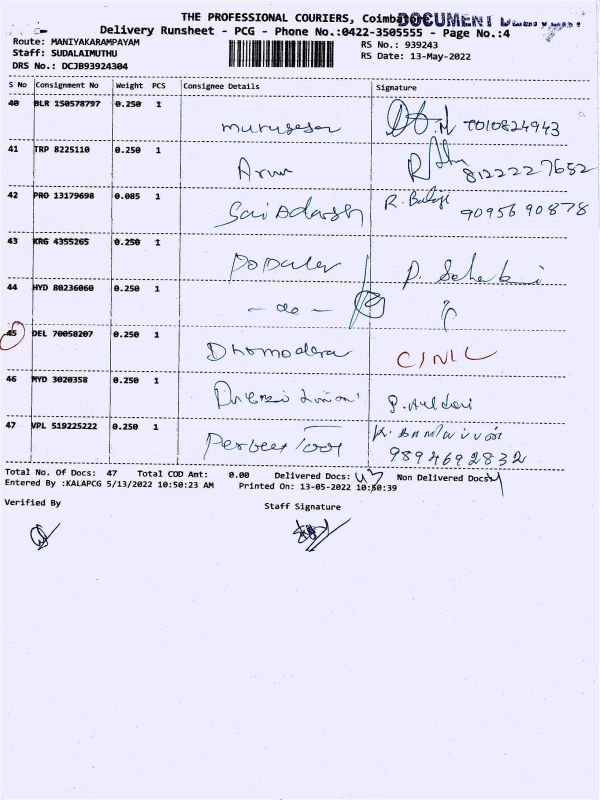 THE PROFESSIONAL COURIERS, Coimbatore
DOCUMENT
Delivery Runsheet - PCG - Phone No.:0422-3505555 - Page No.:4
Route: MANIYAKARAMPAYAM
RS No.: 939243
Staff: SUDALAIMUTHU
RS Date: 13-May-2022
DRS No.: DCJB93924304
S No Consignment No Weight PCS Consignee Details Signature
40 BLR 150578797 0.250 1
murugesan 7010824943
41 TRP 8225110 0.250 1
Arun 8122227652
42 PRO 13179698 0.085 1
Sai Adarsh R. Balaji 9095690878
43 KRG 4355265 0.250 1
Popular P.
44 HYD 80236060 0.250 1
- do -
45 DEL 70058207 0.250 1
46 MYD 3020358 0.250 1
47 VPL 519225222 0.250 1
K.
9894692832
Total No. Of Docs: 47 Total COD Amt: 0.00 Delivered Docs: Non Delivered Docs:
Entered By :KALAPCG 5/13/2022 10:50:23 AM Printed On: 13-05-2022 10:50:39
Verified By Staff Signature